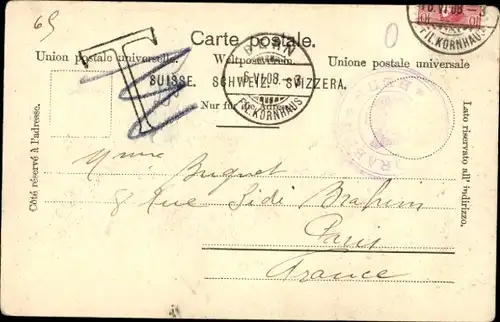 69
T
Carte postale.
Union postale universelle. Weltpostverein. Unione postale universale
SUISSE. SCHWEIZ. SVIZZERA.
Nur für die Adresse.
Côté réservé à l'adresse.
Lato riservato all' indirizzo.
BERN
6.VI.08.-3
FIL. KORNHAUS
6.VI.08.-3
FIL. KORNHAUS
10
0
Mme Buguet
8 Rue Sidi Brahim
Paris
France